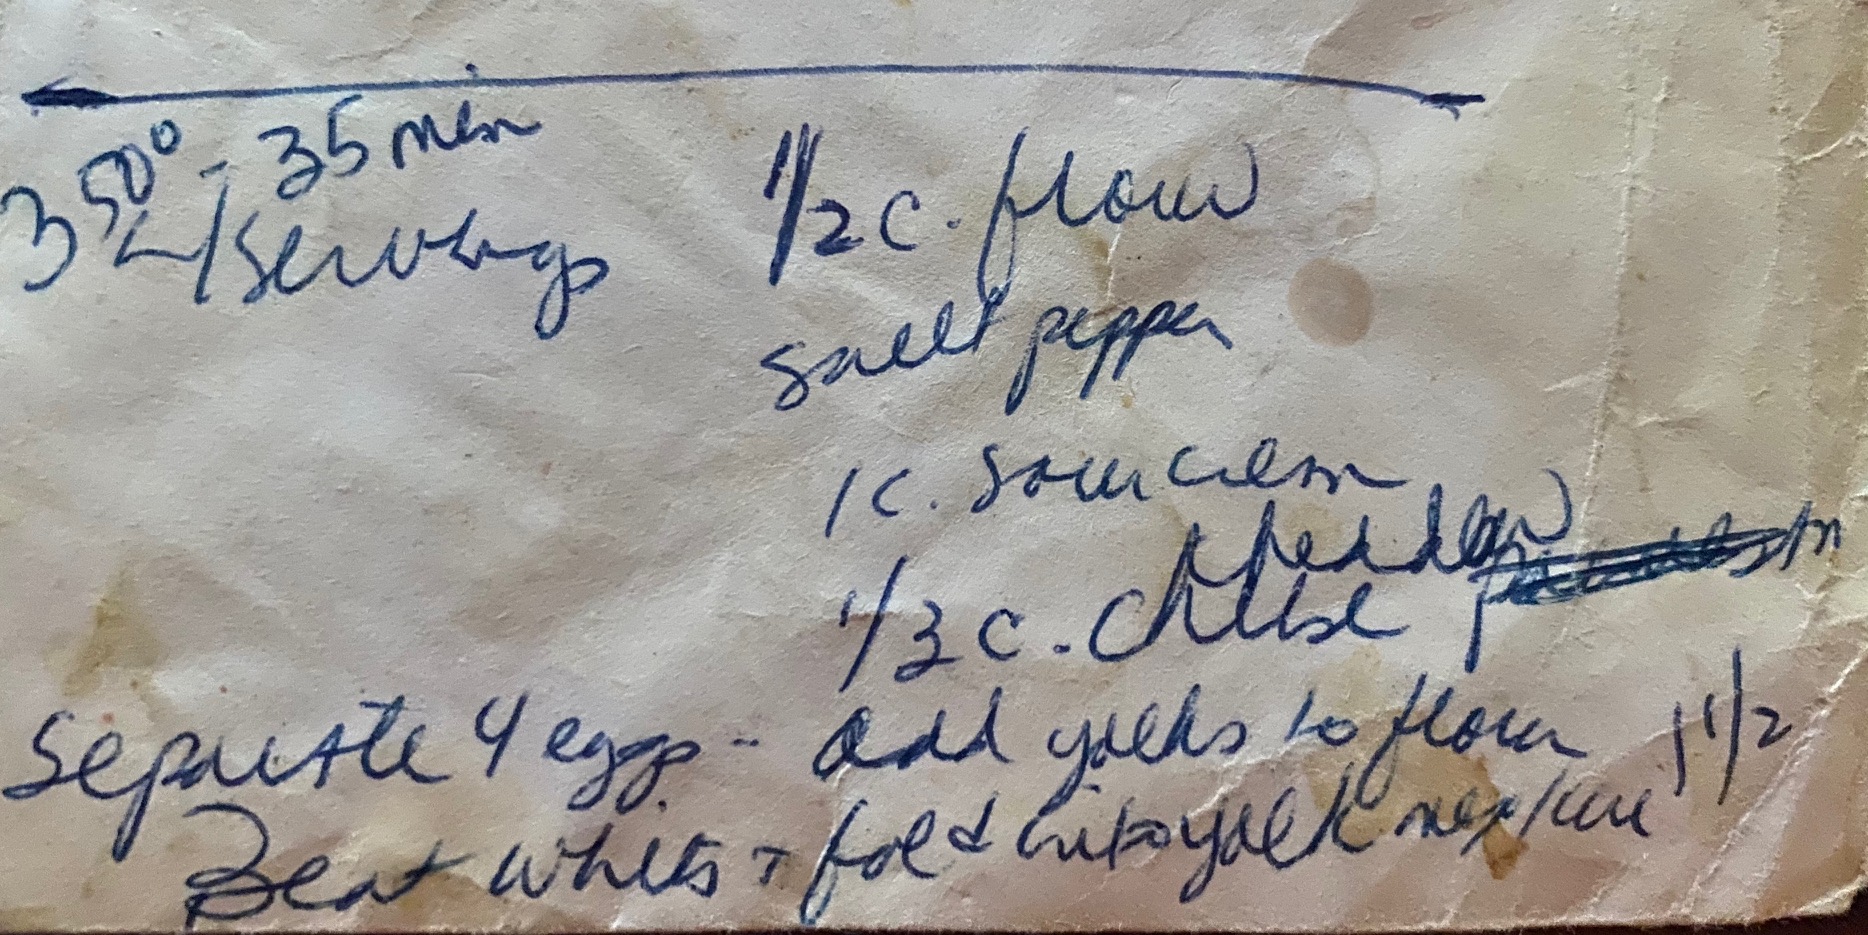 350° - 35 min
4 servings
1/2 c. flour
salt pepper
1 c. sour cream
cheddar
1/3 c. cheese
separate 4 eggs -- add yolks to flour 1 1/2
Beat whites + fold into yolk mixture